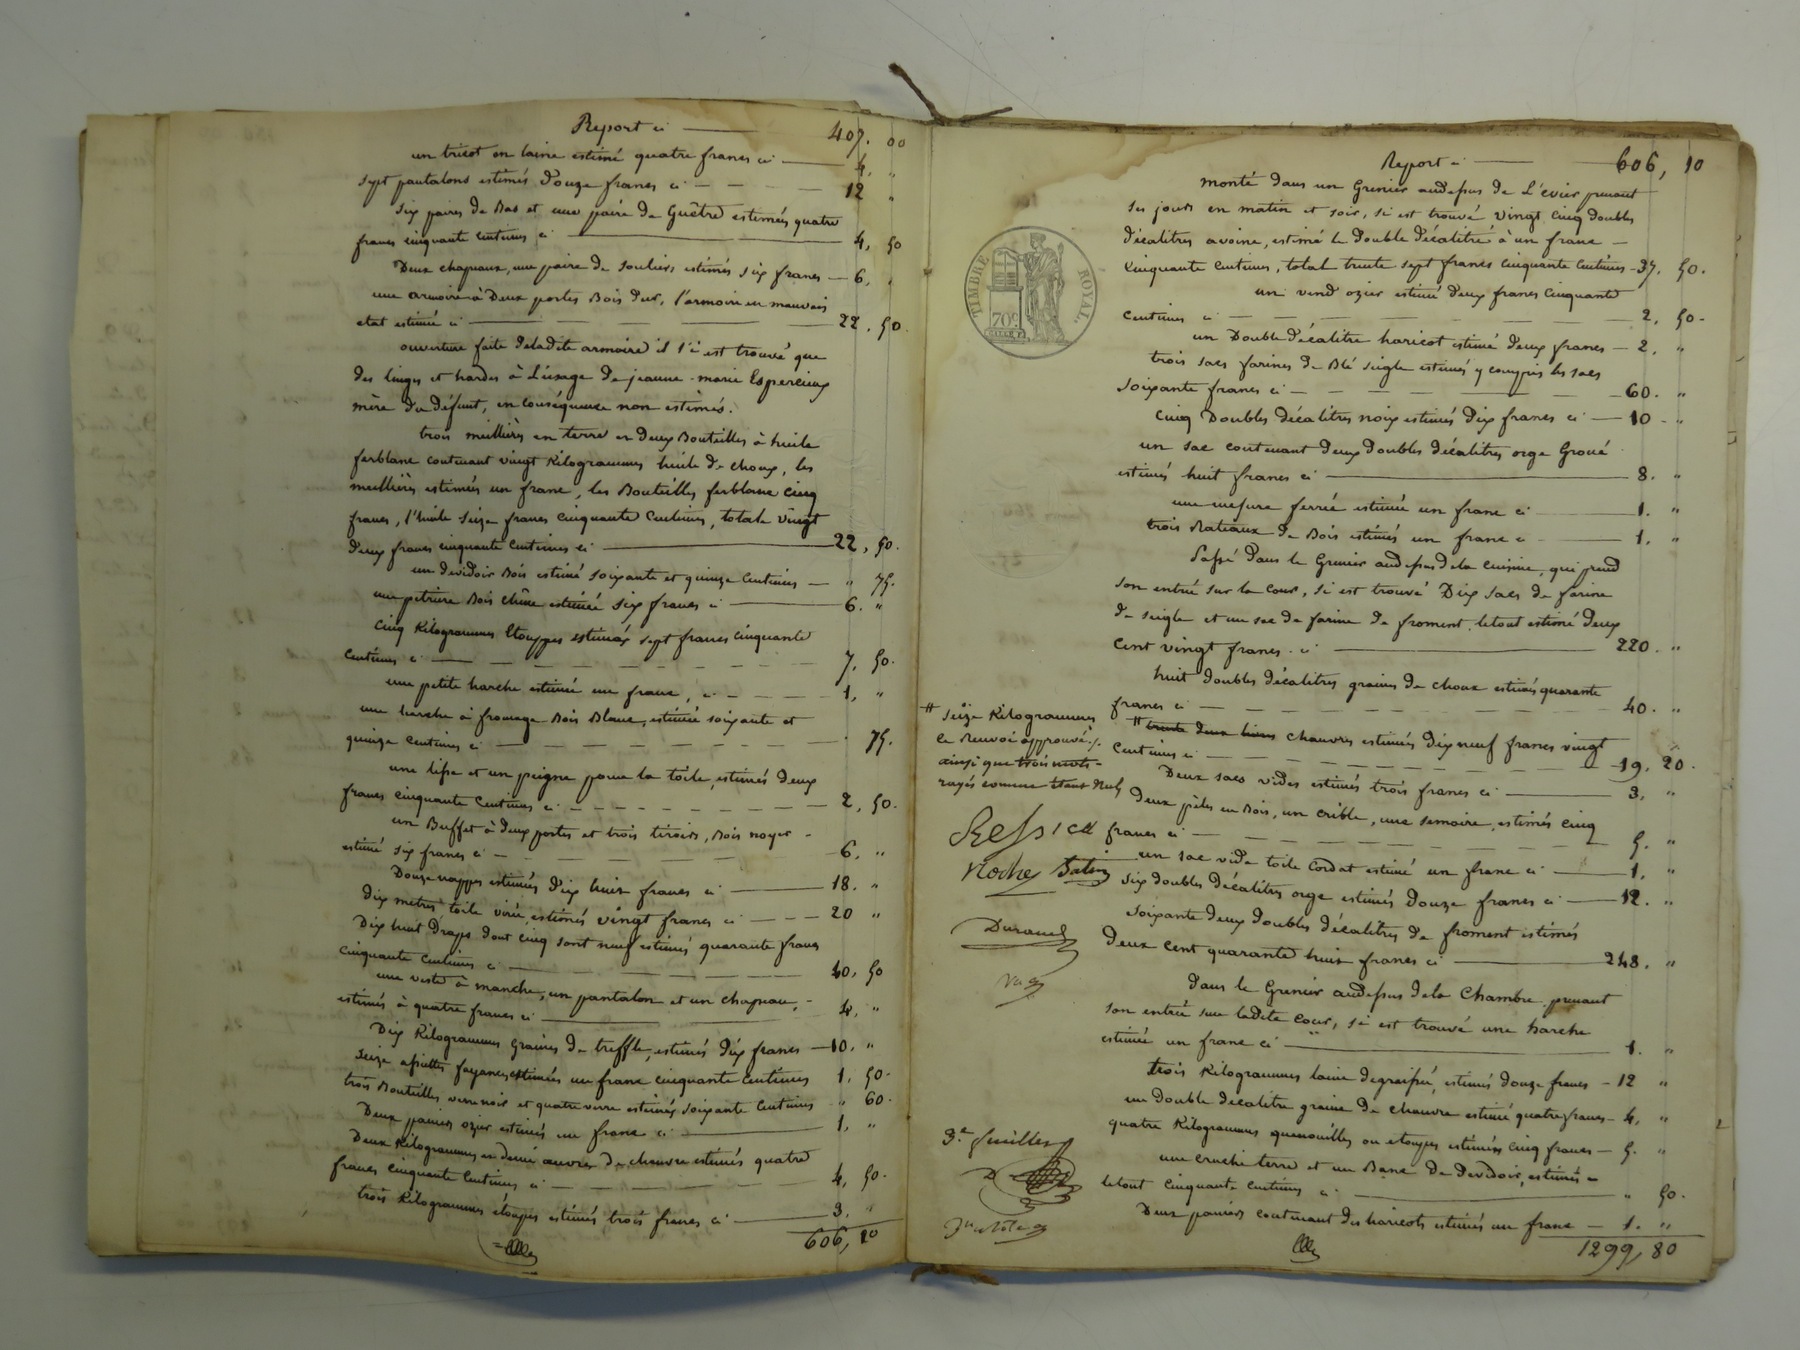 Report ci — 407. 00
un tricot en laine estimé quatre francs ci — 4. "
sept pantalons estimés douze francs ci — 12 "
six paires de Bas et une paire de Guêtre estimés quatre
francs cinquante centimes ci — 4, 50
Deux chapeaux, une paire de souliers estimés six francs — 6, "
une armoire à Deux portes Bois dur, l'armoire en mauvais
etat estimée ci — 22, 50.
ouverture faite deladite armoire il s'i est trouvé que
des linges et hardes à L'usage de jeanne-marie Espercieux
mère du défunt, en conséquence non estimés.
trois meillières en terre et deux Bouteilles à huile
ferblanc contenant vingt Kilogrammes huile de choux, les
meillières estimés un franc, les Bouteilles ferblanc cinq
francs, l'huile seize francs cinquante centimes, totale vingt
deux francs cinquante centimes ci — 22, 50.
un devidoir Bois estimé soixante et quinze centimes — " 75.
une petriere Bois chêne estimée six francs ci — 6. "
cinq Kilogrammes Etouppes estimés sept francs cinquante
centimes ci — 7, 50.
une petite harche estimée un franc, ci — 1, "
une harche à fromage Bois Blanc, estimée soixante et
quinze centimes ci — " 75.
une lisse et un peigne pour la toile, estimés deux
francs cinquante centimes ci — 2, 50.
un Buffet à deux portes et trois tiroirs, Bois noyer -
estimé six francs ci — 6, "
Douze nappes estimées dix huit francs ci — 18. "
dix metres toile virée, estimés vingt francs ci — 20 "
Dix huit Draps dont cinq sont neuf estimés quarante francs
cinquante centimes ci — 40, 50
une veste à manche, un pantalon et un chapeau, -
estimés à quatre francs ci — 4. "
Dix Kilogrammes graines de treffle, estimés dix francs — 10, "
seize assiettes fayance, estimées un franc cinquante centimes 1, 50.
trois Bouteilles verre noir et quatre verre estimés soixante centimes " 60.
Deux paniers ozier estimés un franc ci — 1, "
Deux Kilogrammes et demi œuvres de chanvre estimés quatre
francs cinquante centimes ci — 4, 50.
trois Kilogrammes étoupes estimés trois francs ci — 3. "
606, 10
Report ci — 606, 10
monté dans un Grenier audessus de L'évier prenant
ses jours en matin et soir, si est trouvé vingt cinq doubles
décalitres avoine, estimé le double décalitre à un franc —
cinquante centimes, total trente sept francs cinquante centimes — 37, 50.
un vend ozier estimé deux francs cinquante
centimes ci — 2, 50.
un Double décalitre haricot estimé deux francs — 2. "
trois sacs farines de Blé seigle estimés y compris les sacs
soixante francs ci — 60. "
cinq Doubles décalitres noix estimés dix francs ci — 10 - "
un sac contenant deux doubles décalitres orge Groué
estimés huit francs ci — 8. "
une mesure ferrée estimée un franc ci — 1. "
trois Rateaux de Bois estimés un franc ci — 1. "
Passé dans le Grenier audessus dela cuisine, qui prend
son entrée sur la cour, si est trouvé Dix sacs de farine
de seigle et un sac de farine de froment letout estimé deux
cent vingt francs. ci — 220. "
huit doubles décalitres graines de choux estimés quarante
francs ci — 40. "
# trente deux livres chanvres estimés dix neuf francs vingt
centimes ci — 19, 20.
Deux sacs vides estimés trois francs ci — 3, "
deux pêles en Bois, un crible, une semoire, estimés cinq
francs ci — 5. "
un sac vide toile Cordat estimé un franc ci — 1, "
six doubles décalitres orge estimés douze francs ci — 12. "
soixante deux doubles décalitres de froment estimés
deux cent quarante huit francs ci — 248. "
dans le Grenier audessus dela Chambre, prenant
son entrée sur ladite cour, si est trouvé une harche
estimée un franc ci — 1. "
trois Kilogrammes laine degraissée, estimés douze francs — 12 "
un double decalitre graine de chanvre estimé quatre francs — 4, "
quatre Kilogrammes quenouilles ou etoupes estimées cinq francs — 5. "
une cruche terre et un Banc de devidoir, estimés -
letout cinquante centimes ci — " 50.
Deux paniers contenant des haricots estimés un franc — 1. "
1299, 80
TIMBRE ROYAL.
70c
# seize Kilogrammes
ce Renvoi approuvé ./.
ainsi que trois mots -
rayés comme étant Nuls
Durand
3.e feuillet